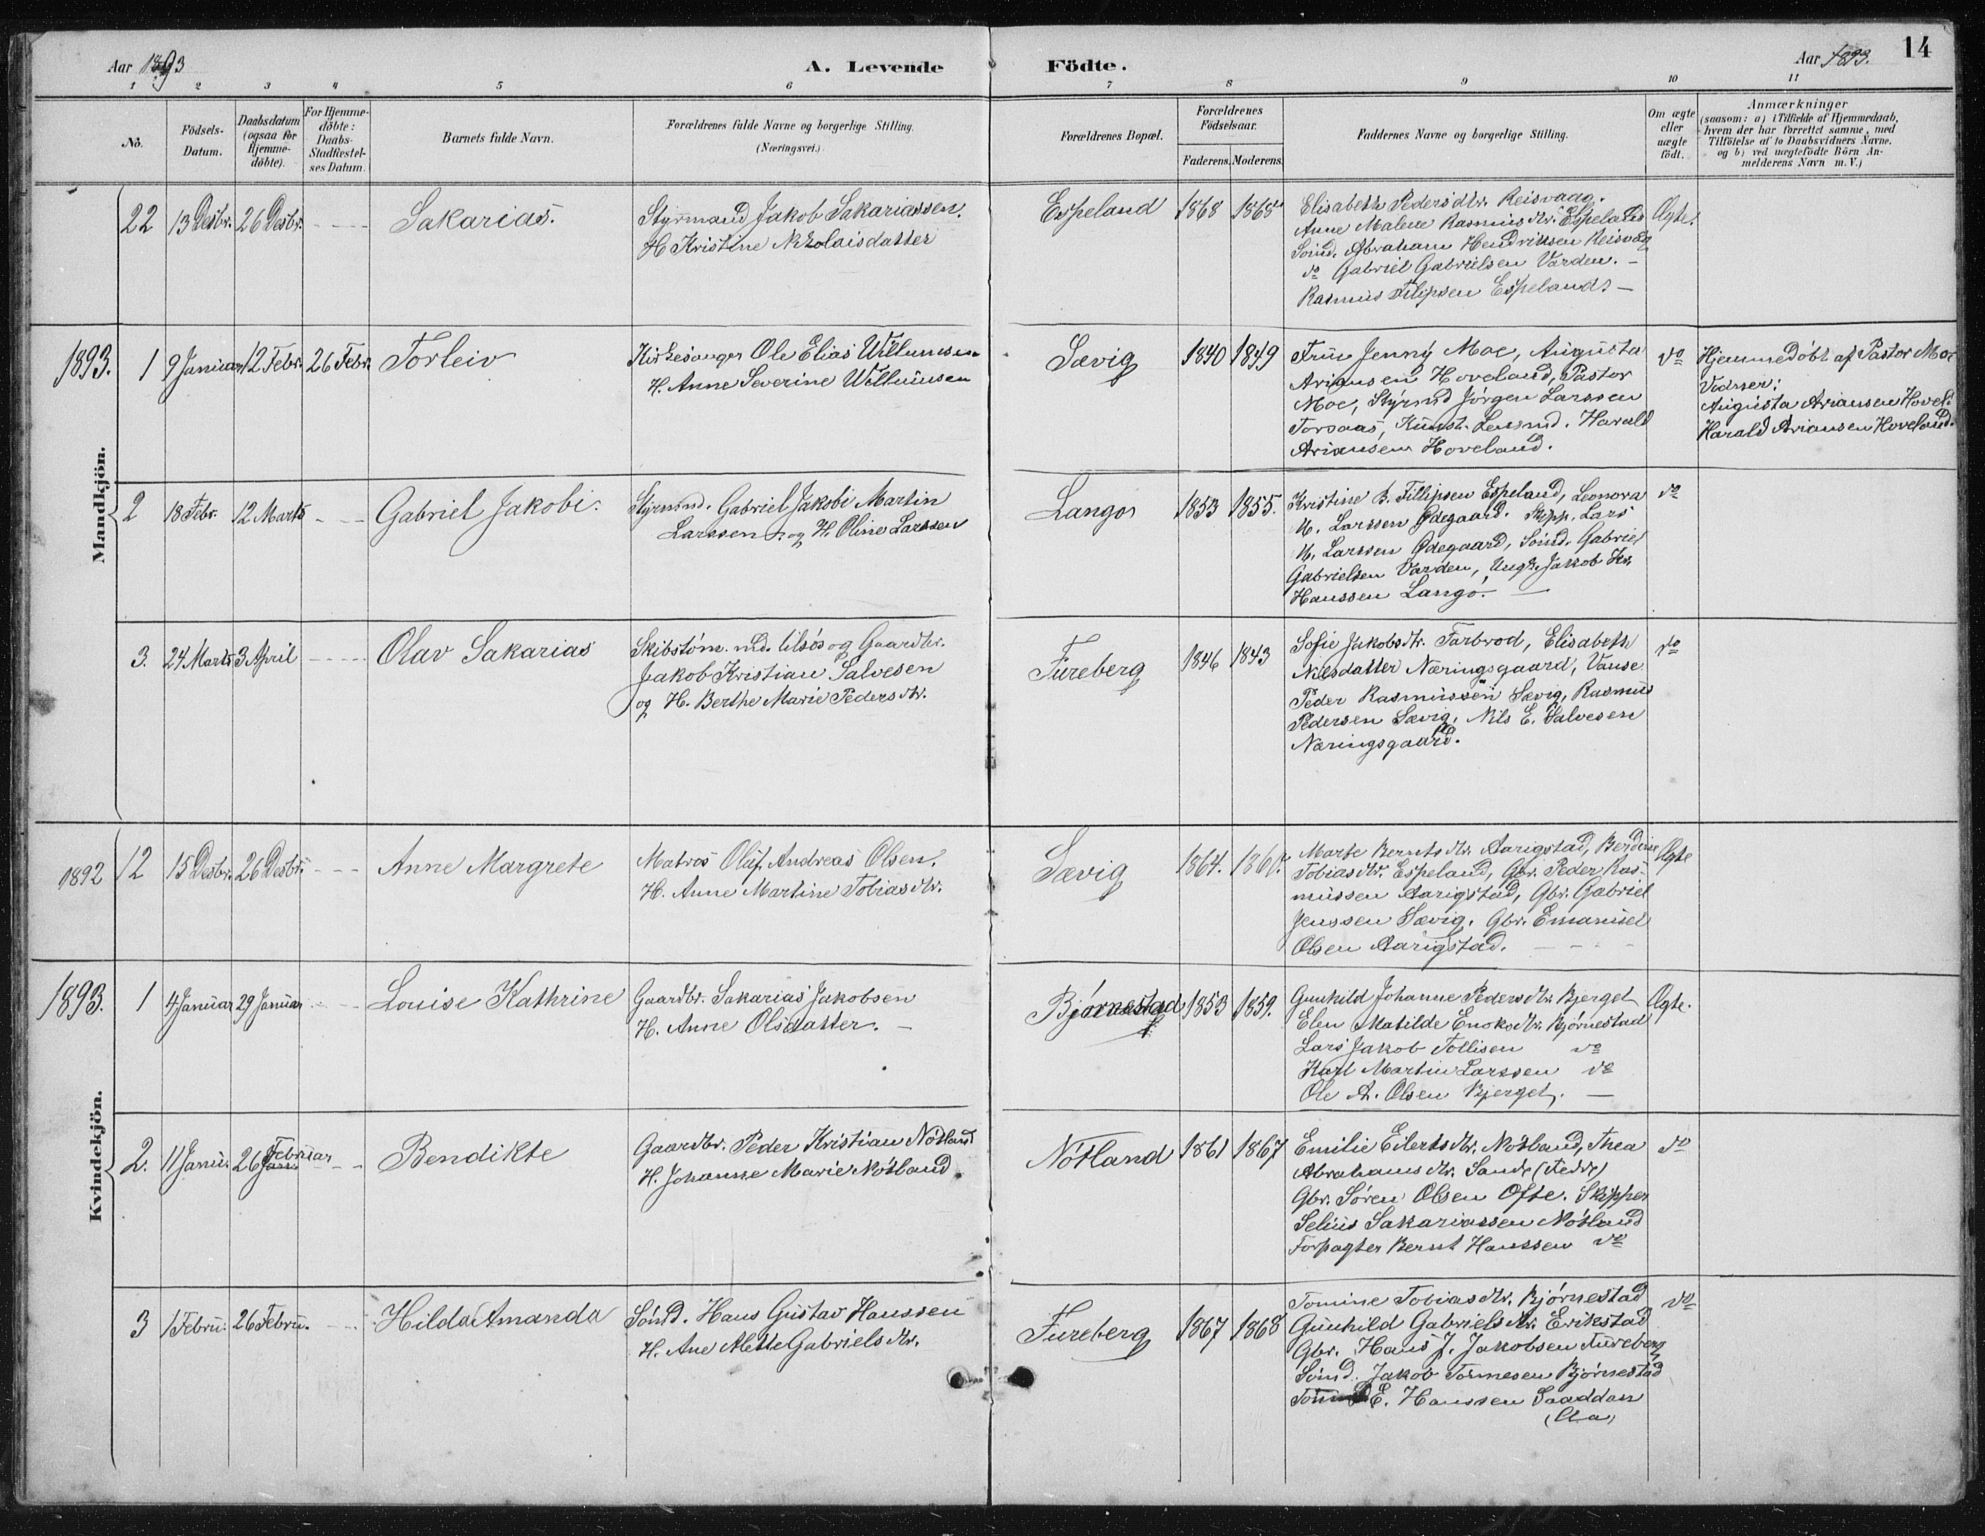 Aar 1893
A. Levende Födte.
Aar 1893.
14
1 2 3 4 5 6 7 8 9 10 11
No.
Födsels-
Datum.
Daabsdatum
(ogsaa for
Hjemme-
döbte).
For Hjemme-
döbte:
Daabs-
Stadfæstel-
ses Datum.
Barnets fulde Navn.
Forældrenes fulde Navne og borgerlige Stilling.
(Næringsvei.)
Forældrenes Bopæl.
Forældrenes
Födselsaar.
Faderens. Moderens.
Faddernes Navne og borgerlige Stilling.
Om ægte
eller
uægte
födt.
Anmærkninger
(saasom: a) i Tilfælde af Hjemmedaab,
hvem der har forrettet samme, med
Tilföielse af to Daabsvidners Navne,
og b) ved uægtefödte Börn An-
melderens Navn m. V.)
Mandkjön.
22 13 Desbr. 26 Desbr. Sakarias.
Styrmand Jakob Sakariassen.
H. Kristine Nikolaisdatter
Espeland 1868 1868
Elisabeth Pedersdtr. Reisvaag.
Anne Malene Rasmusdtr. Espelands
Sömd. Abraham Hendriksen Reisvåg
do Gabriel Gabrielsen Varden. –
Rasmus Filipsen Espelands –
Ægte.
1893. 1 9 Januar 12 Febr. 26 Febr. Torleiv
Kirkesanger Ole Elias Willumsen
H. Anne Severine Willumsen
Sævig 1840 1849
Frue Jenny Moe, Augusta
Ariansen Hoveland, Pastor
Moe, Styrmd Jörgen Larssen
Torsaas, Kunst. Lensmd. Harald
Ariansen Hoveland.
do
Hjemmedöbt af Pastor Moe
Vidner:
Augusta Ariansen Hovel.
Harald Ariansen Hoveland.
2 18 Febr. 12 Marts Gabriel Jakobi.
Styrmnd. Gabriel Jakobi Martin
Larssen og H. Oline Larssen
Langö 1853 1855.
Kristine B. Fillipsen Espeland, Leonora
M. Larssen Ödegaard. Skipp. Lars
M. Larssen Ødegaard, Sömd. Gabriel
Gabrielsen Varden, Ungk. Jakob Kr.
Hanssen Langö. –
do
3. 24 Marts 3 April Olav Sakarias
Skibstöm. md. tilsös og Gaardbr.
Jakob Kristian Salvesen
og H. Berthe Marie Pedersdtr.
Fureberg 1846 1843
Sofie Jakobsdtr. Farbrod, Elisabeth
Nilsdatter Næringsgaard, Vanse
Peder Rasmussen Sævig, Rasmus
Pedersen Sævig. Nils E. Salvesen
Næringsgaard.
do
Kvindekjön.
1892 12 15 Desbr. 26 Desbr. Anne Margrete
Matros Oluf Andreas Olsen.
H. Anne Martine Tobiasdtr.
Sævig 1864. 1860.
Marte Berntsdtr. Aarigstad, Berdine
Tobiasdtr. Espeland, Gbr. Peder Ras-
mussen Aarigstad, Gbr. Gabriel
Jenssen Sævig. Gbr. Emanuel
Olsen Aarigstad.
Ægte
1893. 1 4 Januar 29 Januar Louise Kathrine
Gaardbr. Sakarias Jakobsen
H. Anne Olsdatter. –
Björnestad 1853 1859.
Gunhild Johanne Pedersdtr. Bjerget
Elen Matilde Enoksdtr. Björnestad
Lars Jakob Tollisen do
Karl Martin Larssen do
Ole A. Olsen Bjerget. –
Ægte.
2. 11 Janu. 26 Februar Bendikte
Gaardbr. Peder Kristian Nötland
H. Johanne Marie Nötland
Nötland 1861 1867
Emilie Eilertsdtr. Nötland, Thea
Abrahamsdtr. Sande (Fedde)
Gbr. Sören Olsen Ofte. Skipper
Selius Sakariassen Nötland
Forpagter Bernt Hanssen do
do
3 1 Febru. 26 Febru. Hilda Amanda
Sömd. Hans Gustav Hanssen
H. Ane Mette Gabrielsdtr.
Fureberg 1867 1868
Tomine Tobiasdtr. Björnestad
Gunhild Gabrielsdtr. Erikstad
Gbr. Hans J. Jakobsen Fureberg
Sömd. Jakob Tönnesen Björnestad
E. Hanssen Saaddan
do